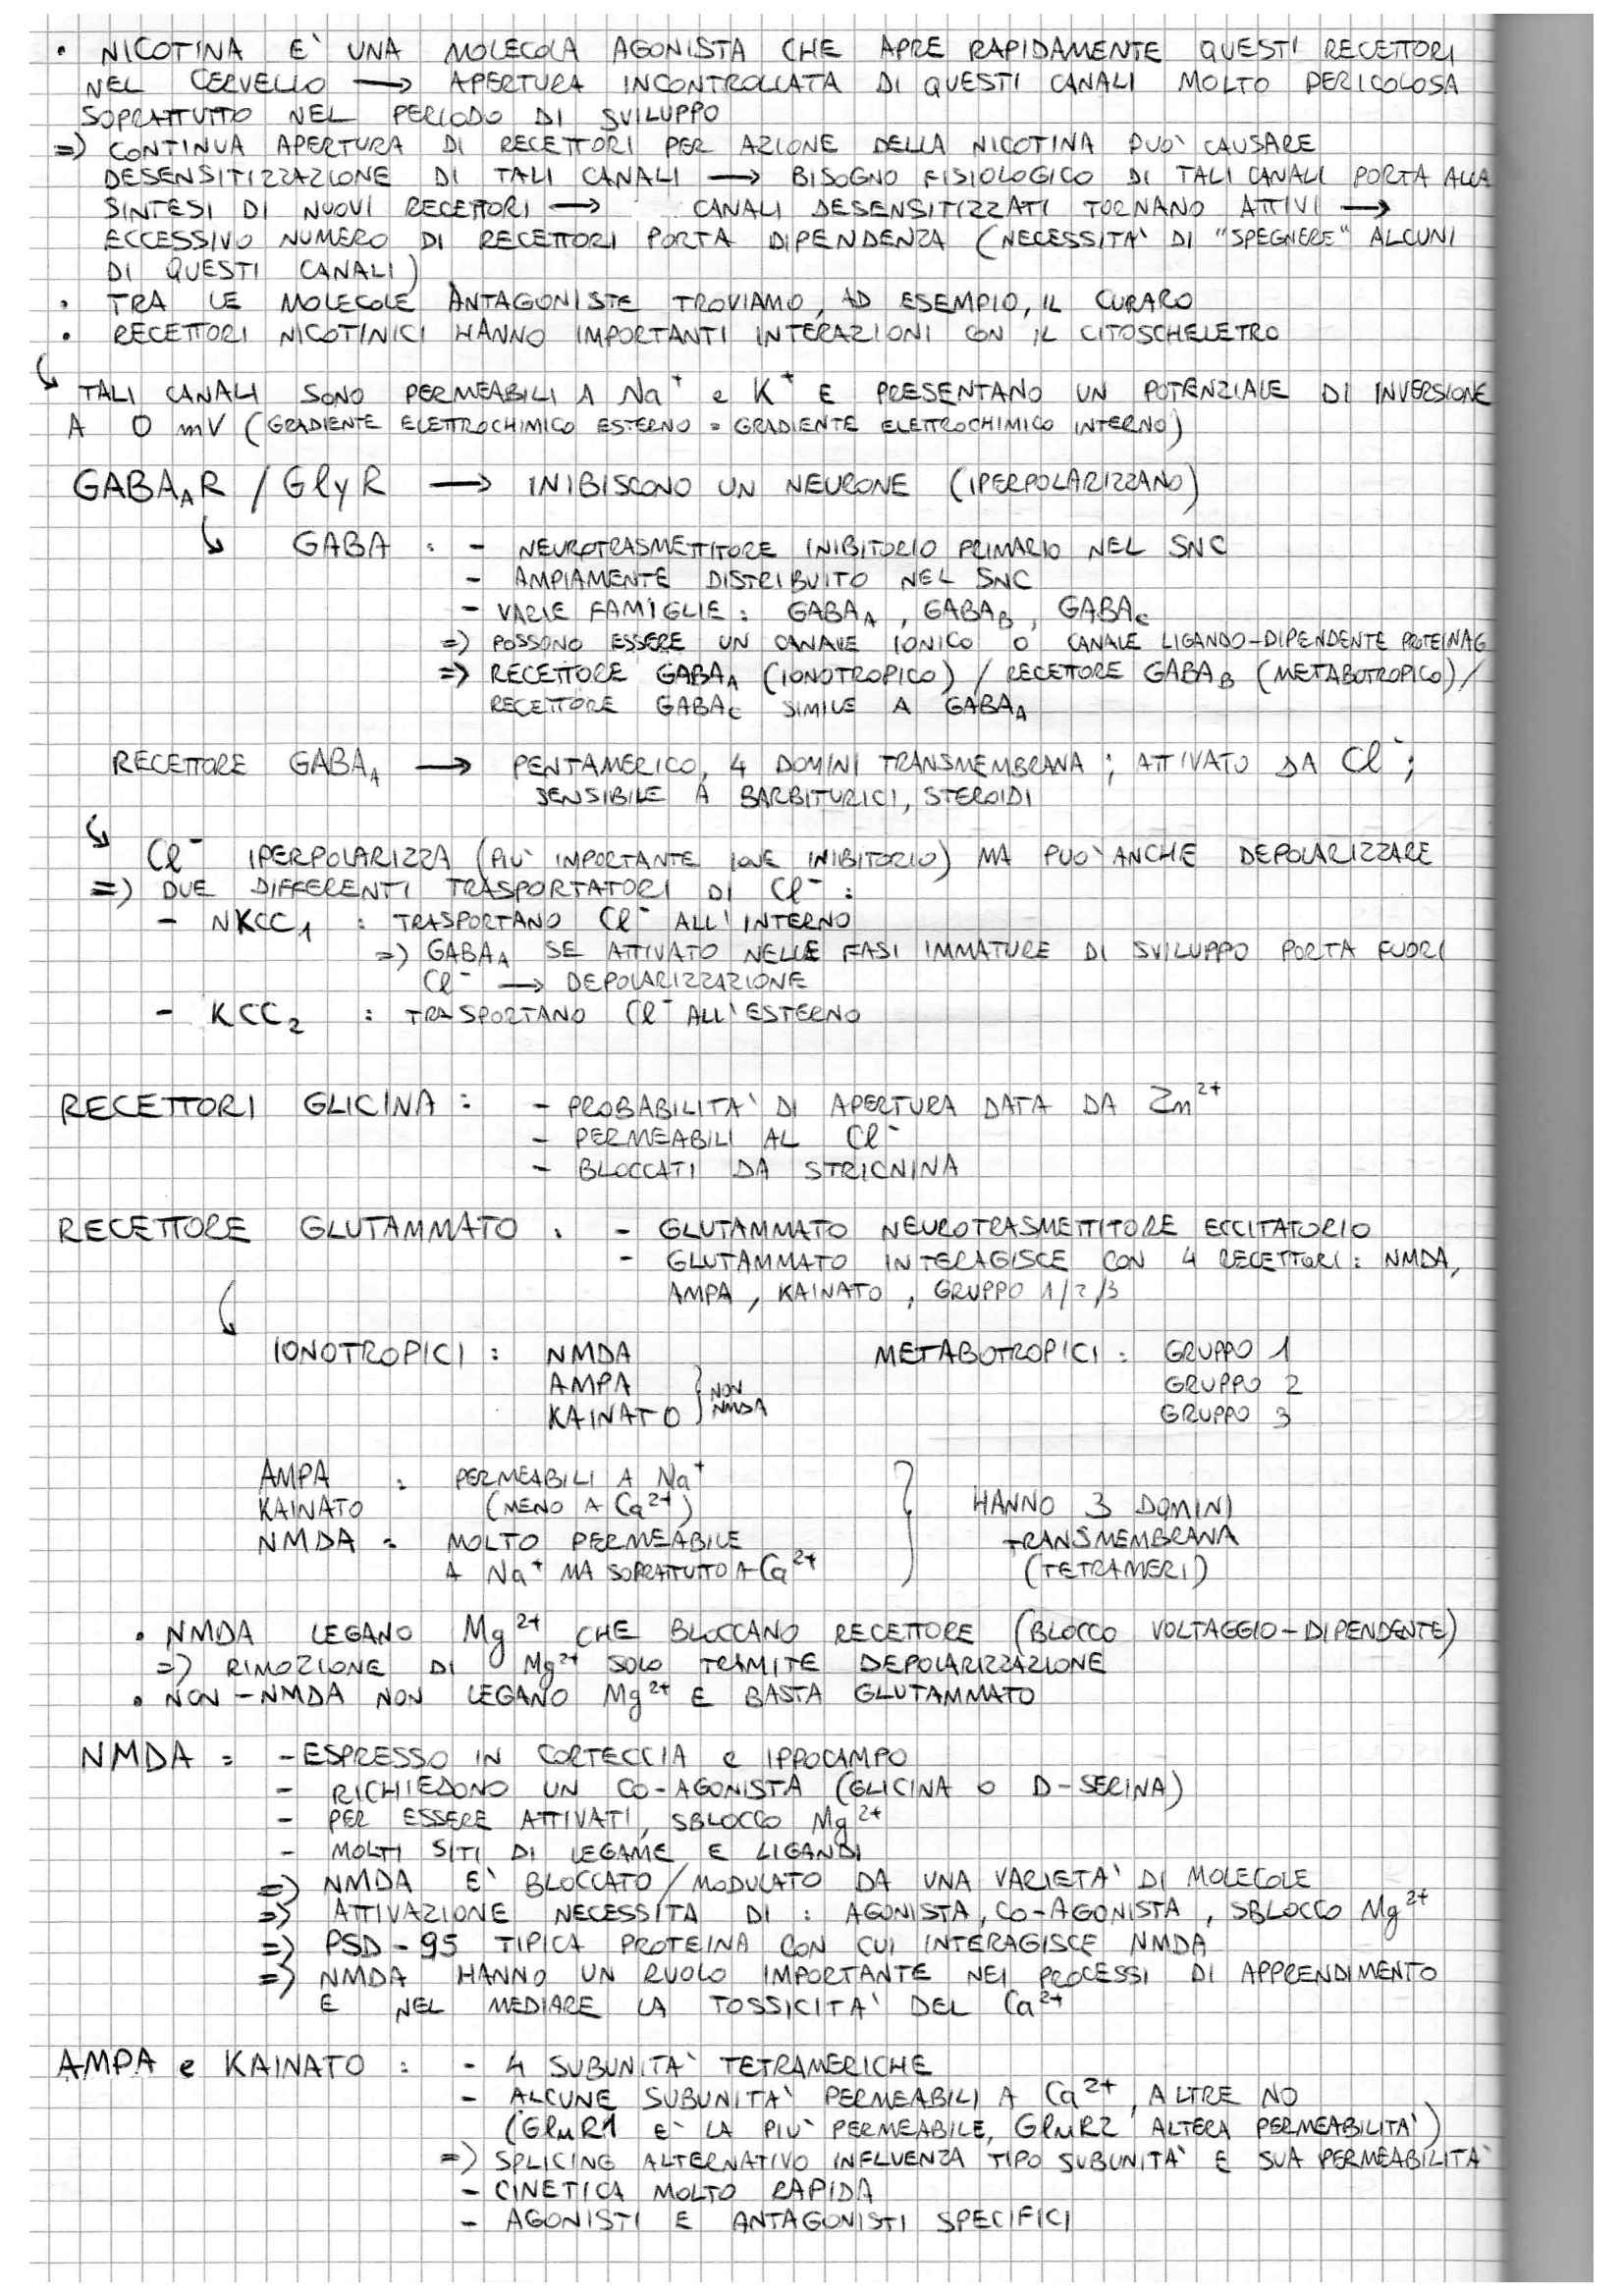 • NICOTINA E' UNA MOLECOLA AGONISTA CHE APRE RAPIDAMENTE QUESTI RECETTORI
NEL CERVELLO → APERTURA INCONTROLLATA DI QUESTI CANALI MOLTO PERICOLOSA
SOPRATTUTTO NEL PERIODO DI SVILUPPO
=) CONTINUA APERTURA DI RECETTORI PER AZIONE DELLA NICOTINA PUO' CAUSARE
DESENSITIZZAZIONE DI TALI CANALI → BISOGNO FISIOLOGICO DI TALI CANALI PORTA ALLA
SINTESI DI NUOVI RECETTORI → CANALI DESENSITIZZATI TORNANO ATTIVI →
ECCESSIVO NUMERO DI RECETTORI PORTA DIPENDENZA (NECESSITA' DI "SPEGNERE" ALCUNI
DI QUESTI CANALI)
• TRA LE MOLECOLE ANTAGONISTE TROVIAMO, AD ESEMPIO, IL CURARO
• RECETTORI NICOTINICI HANNO IMPORTANTI INTERAZIONI CON IL CITOSCHELETRO
↳ TALI CANALI SONO PERMEABILI A Na⁺ e K⁺ E PRESENTANO UN POTENZIALE DI INVERSIONE
A 0 mV (GRADIENTE ELETTROCHIMICO ESTERNO = GRADIENTE ELETTROCHIMICO INTERNO)
GABA_A R / GlyR → INIBISCONO UN NEURONE (IPERPOLARIZZANO)
↳ GABA : - NEUROTRASMETTITORE INIBITORIO PRIMARIO NEL SNC
- AMPIAMENTE DISTRIBUITO NEL SNC
- VARIE FAMIGLIE : GABA_A , GABA_B , GABA_C
=) POSSONO ESSERE UN CANALE IONICO O CANALE LIGANDO-DIPENDENTE PROTEINA G
=) RECETTORE GABA_A (IONOTROPICO) / RECETTORE GABA_B (METABOTROPICO) /
RECETTORE GABA_C SIMILE A GABA_A
RECETTORE GABA_A → PENTAMERICO, 4 DOMINI TRANSMEMBRANA ; ATTIVATO DA Cl⁻ ;
SENSIBILE A BARBITURICI, STEROIDI
↳ Cl⁻ IPERPOLARIZZA (PIU' IMPORTANTE IONE INIBITORIO) MA PUO' ANCHE DEPOLARIZZARE
=) DUE DIFFERENTI TRASPORTATORI DI Cl⁻ :
- NKCC₁ : TRASPORTANO Cl⁻ ALL'INTERNO
=) GABA_A SE ATTIVATO NELLE FASI IMMATURE DI SVILUPPO PORTA FUORI
Cl⁻ → DEPOLARIZZAZIONE
- KCC₂ : TRASPORTANO Cl⁻ ALL'ESTERNO
RECETTORI GLICINA : - PROBABILITA' DI APERTURA DATA DA Zn²⁺
- PERMEABILI AL Cl⁻
- BLOCCATI DA STRICNINA
RECETTORE GLUTAMMATO : - GLUTAMMATO NEUROTRASMETTITORE ECCITATORIO
- GLUTAMMATO INTERAGISCE CON 4 RECETTORI : NMDA,
AMPA , KAINATO , GRUPPO 1/2/3
↳ IONOTROPICI : NMDA METABOTROPICI : GRUPPO 1
AMPA } NON GRUPPO 2
KAINATO } NMDA GRUPPO 3
AMPA : PERMEABILI A Na⁺
KAINATO (MENO A Ca²⁺) } HANNO 3 DOMINI
NMDA : MOLTO PERMEABILE TRANSMEMBRANA
A Na⁺ MA SOPRATTUTTO A Ca²⁺ (TETRAMERI)
• NMDA LEGANO Mg²⁺ CHE BLOCCANO RECETTORE (BLOCCO VOLTAGGIO-DIPENDENTE)
=) RIMOZIONE DI Mg²⁺ SOLO TRAMITE DEPOLARIZZAZIONE
• NON-NMDA NON LEGANO Mg²⁺ E BASTA GLUTAMMATO
NMDA : - ESPRESSO IN CORTECCIA e IPPOCAMPO
- RICHIEDONO UN CO-AGONISTA (GLICINA O D-SERINA)
- PER ESSERE ATTIVATI, SBLOCCO Mg²⁺
- MOLTI SITI DI LEGAME E LIGANDI
=) NMDA E' BLOCCATO/MODULATO DA UNA VARIETA' DI MOLECOLE
=) ATTIVAZIONE NECESSITA DI : AGONISTA, CO-AGONISTA , SBLOCCO Mg²⁺
=) PSD-95 TIPICA PROTEINA CON CUI INTERAGISCE NMDA
=) NMDA HANNO UN RUOLO IMPORTANTE NEI PROCESSI DI APPRENDIMENTO
E NEL MEDIARE LA TOSSICITA' DEL Ca²⁺
AMPA e KAINATO : - 4 SUBUNITA' TETRAMERICHE
- ALCUNE SUBUNITA' PERMEABILI A Ca²⁺, ALTRE NO
(GluR1 E' LA PIU' PERMEABILE, GluR2 ALTERA PERMEABILITA')
=) SPLICING ALTERNATIVO INFLUENZA TIPO SUBUNITA' E SUA PERMEABILITA'
- CINETICA MOLTO RAPIDA
- AGONISTI E ANTAGONISTI SPECIFICI